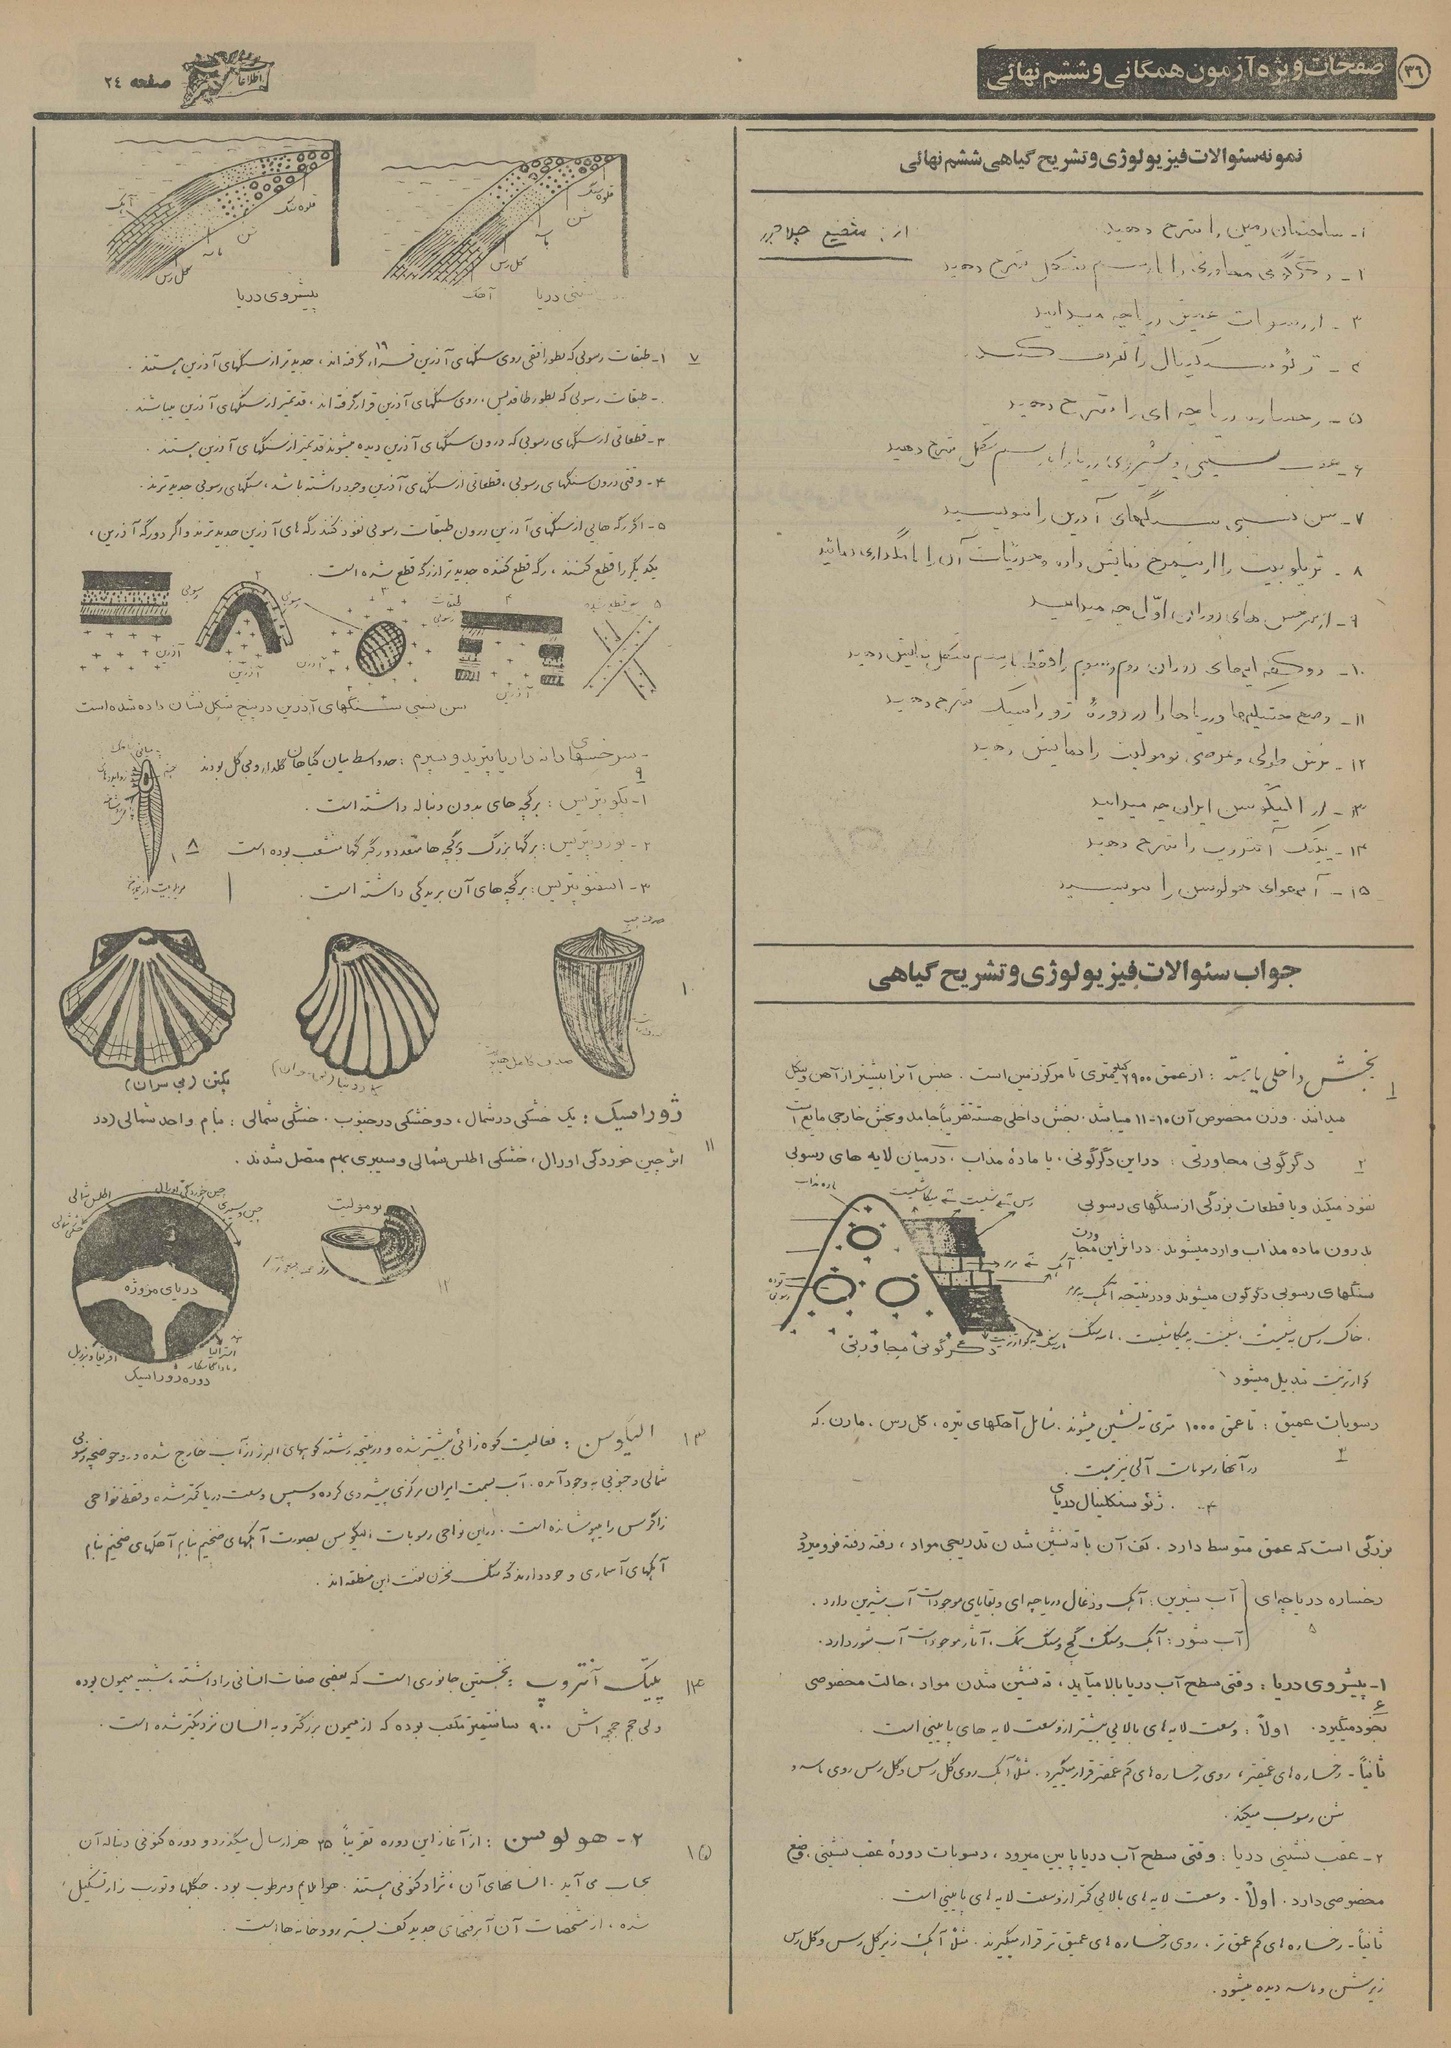 ۳۶
صفحات ویژه آزمون همگانی و ششم نهائی
اطلاعات
صفحه ۲۴
نمونه سئوالات فیزیولوژی و تشریح گیاهی ششم نهائی
از:
۱- ساختمان زمین را شرح دهید
۲- دگرگونی مجاورتی را با رسم شکل شرح دهید
۳- از رسوبات عمیق دریا چه میدانید
۴- ژئوسنکلینال را تعریف کنید
۵- رخساره دریاچه ای را شرح دهید
۶- عقب نشینی و پیشروی دریا را با رسم شکل شرح دهید
۷- سن نسبی سنگهای آذرین را بنویسید
۸- تریلوبیت را از نیمرخ نمایش داده و جزئیات آن را نامگذاری نمائید
۹- از سرخس های دوران اول چه میدانید
۱۰- دو کفه ایهای دوران دوم و سوم را فقط با رسم شکل نمایش دهید
۱۱- وضع خشکیها و دریاها را در دورهٔ ژوراسیک شرح دهید
۱۲- برش طولی و عرضی نومولیت را نمایش دهید
۱۳- از الیگوسن ایران چه میدانید
۱۴- پیتک آنتروپ را شرح دهید
۱۵- آب و هوای هولوسن را بنویسید
جواب سئوالات فیزیولوژی و تشریح گیاهی
۱
بخش داخلی یا هسته : از عمق ۲۹۰۰ کیلومتری تا مرکز زمین است . جنس آنرا بیشتر از آهن و نیکل
میدانند . وزن مخصوص آن ۱۰-۱۱ میباشد . بخش داخلی هسته تقریباً جامد و بخش خارجی مایع است
۲ دگرگونی مجاورتی : در این دگرگونی ، یا مادهٔ مذاب ، در میان لایه های رسوبی
نفوذ میکند و یا قطعات بزرگی از سنگهای رسوبی
بدرون ماده مذاب وارد میشوند . در اثر این مجاورت
سنگهای رسوبی دگرگون میشوند و در نتیجه آهک به مرمر
، خاک رس به شیست ، شیست به میکاشیست ، ماسه سنگ به
کوارتزیت تبدیل میشود .
ماده مذاب
توده رسوبی
دگرگونی مجاورتی
رسوبات عمیق : تا عمق ۱۰۰۰ متری ته نشین میشوند . شامل آهکهای تیره ، گل رس ، مارن . که
۳
در آنها رسوبات آلی نیز هست .
۴- . ژئوسنکلینال دریای
بزرگی است که عمق متوسط دارد . کف آن با ته نشین شدن تدریجی مواد ، رفته رفته فرو میرود
رخساره دریاچه ای
۵
آب شیرین : آهک و ذغال دریاچه ای و بقایای موجودات آب شیرین دارد .
آب شور : آهک و سنگ گچ و سنگ نمک . آثار موجودات آب شور دارد .
۱- پیشروی دریا : وقتی سطح آب دریا بالا میآید ، ته نشین شدن مواد ، حالت مخصوصی
۶
بخود میگیرد . اولاً : وسعت لایه های بالایی بیشتر از وسعت لایه های پایینی است .
ثانیاً - رخساره های عمیقتر ، روی رخساره های کم عمقتر قرار میگیرد . مثلاً آهک روی گل رس و گل رس روی ماسه و
شن رسوب میکند .
۲- عقب نشینی دریا : وقتی سطح آب دریا پایین میرود ، رسوبات دورهٔ عقب نشینی ، وضع
مخصوصی دارد . اولاً - وسعت لایه های بالایی کمتر از وسعت لایه های پایینی است .
ثانیاً - رخساره های کم عمق تر ، روی رخساره های عمیق تر قرار میگیرند . مثلاً آهک زیر گل رس و گل رس
زیر شن و ماسه دیده میشود .
قلوه سنگ
شن
ماسه
گل رس
آهک
نشینی دریا
آهک
قلوه سنگ
شن
ماسه
گل رس
پیشروی دریا
۷
۱- طبقات رسوبی که بطور افقی روی سنگهای آذرین قرار گرفته اند ، جدیدتر از سنگهای آذرین هستند .
- طبقات رسوبی که بطور طاقدیس ، روی سنگهای آذرین قرار گرفته اند ، قدیمتر از سنگهای آذرین میباشند .
۳- قطعاتی از سنگهای رسوبی که درون سنگهای آذرین دیده میشوند قدیمتر از سنگهای آذرین هستند .
۴- وقتی درون سنگهای رسوبی ، قطعاتی از سنگهای آذرین وجود داشته باشد ، سنگهای رسوبی جدیدترند .
۵- اگر رگه هایی از سنگهای آذرین درون طبقات رسوبی نفوذ کنند رگه های آذرین جدیدترند و اگر دو رگه آذرین ،
یکدیگر را قطع کنند ، رگه قطع کننده جدیدتر از رگه قطع شده است .
رسوبی
آذرین
۲
رسوبی
آذرین
۳
آذرین
طبقات رسوبی
۴
آذرین
۵
سن نسبی سنگهای آذرین در پنج شکل نشان داده شده است
- سرخسهای دانه دار یا پتریدوسپرم : حد واسط میان گیاهان گلدار و بی گل بودند
۹
۱- پکوپتریس : برگچه های بدون دنباله داشته است .
۲- نوروپتریس : برگها بزرگ و برگچه ها متعدد و رگبرگها منشعب بوده است
۳- اسفنوپتریس : برگچه های آن بریدگی داشته است .
۸
۱۰
پکتن (بی سران)
کاردیتا (بی سران)
ژوراسیک : یک خشکی در شمال ، دو خشکی در جنوب . خشکی شمالی : بنام واحد شمالی (در
۱۱
اثر چین خوردگی اورال ، خشکی اطلس شمالی و سیبری بهم متصل شدند .
چین خوردگی اورال
اطلس شمالی
خشکی شمالی
دریای مزوژه
افریقا و برزیل
هند
استرالیا
و ماداگاسکار
دوره ژوراسیک
نومولیت
۱۲
۱۳
الیگوسن : فعالیت کوه زائی بیشتر شده و در نتیجه رشته کوههای البرز از آب خارج شده و دو حوضچه رسوبی
شمالی و جنوبی به وجود آمده . آب بسمت ایران مرکزی پیشروی کرده و سپس وسعت دریا کمتر شده و فقط نواحی
زاگرس را میپوشانده است . در این نواحی رسوبات الیگوسن بصورت آهکهای ضخیم بنام آهکهای ضخیم بنام
آهکهای آسماری وجود دارند که سنگ مخزن نفت این منطقه اند .
۱۴
پیتک آنتروپ : نخستین جانوری است که بعضی صفات انسانی را داشته ، شبیه میمون بوده
ولی حجم جمجمه اش ۹۰۰ سانتیمتر مکعب بوده که از میمون بزرگتر و به انسان نزدیکتر شده است .
۱۵
۲- هولوسن : از آغاز این دوره تقریباً ۲۵ هزار سال میگذرد و دوره کنونی دنباله آن
بحساب می آید . انسانهای آن ، نژاد کنونی هستند . هوا ملایم و مرطوب بود . جنگلها و تورب زار تشکیل
شده ، از مشخصات آن آبرفتهای جدید کف بستر رودخانه ها است .